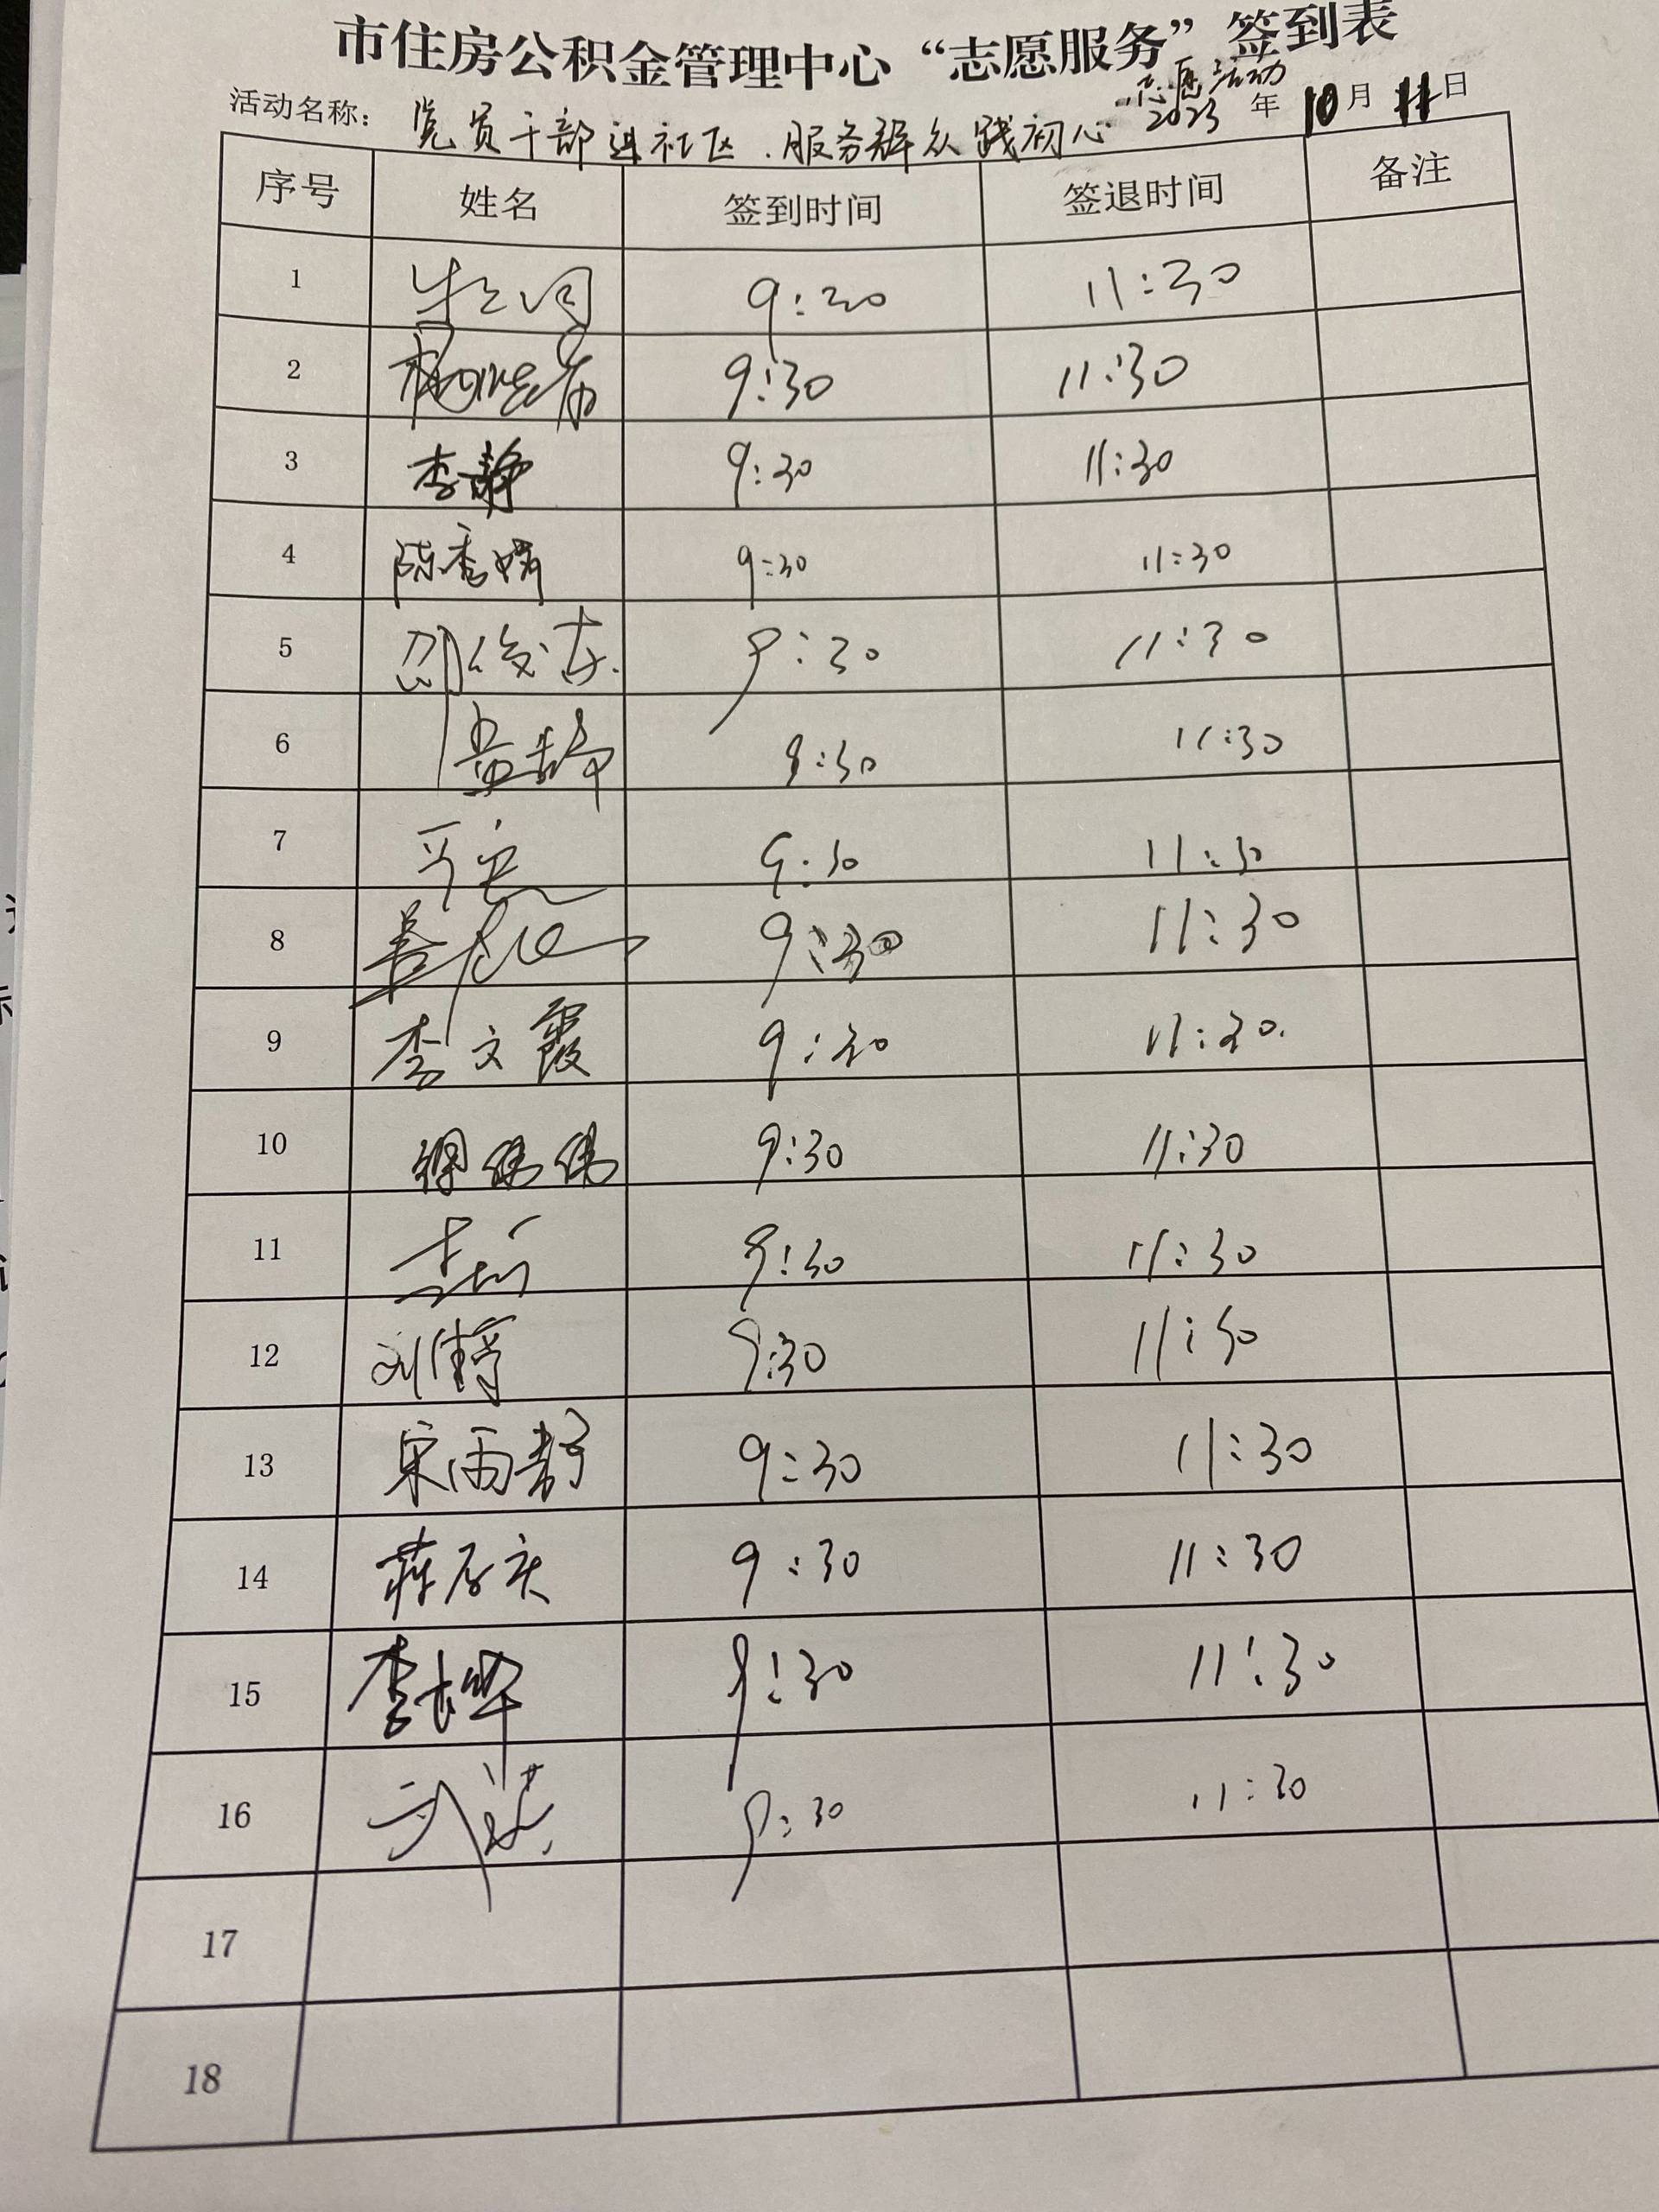 市住房公积金管理中心“志愿服务”签到表
志愿活动
活动名称： 党员干部进社区．服务群众践初心 2023 年 10 月 11 日
序号 姓名 签到时间 签退时间 备注
1 9:30 11:30
2 9:30 11:30
3 李静 9:30 11:30
4 陈秀 9:30 11:30
5 邵俊 9:30 11:30
6 9:30 11:30
7 9:30 11:30
8 9:30 11:30
9 李文霞 9:30 11:30
10 9:30 11:30
11 9:30 11:30
12 刘 9:30 11:30
13 宋雨静 9:30 11:30
14 9:30 11:30
15 李 9:30 11:30
16 9:30 11:30
17
18